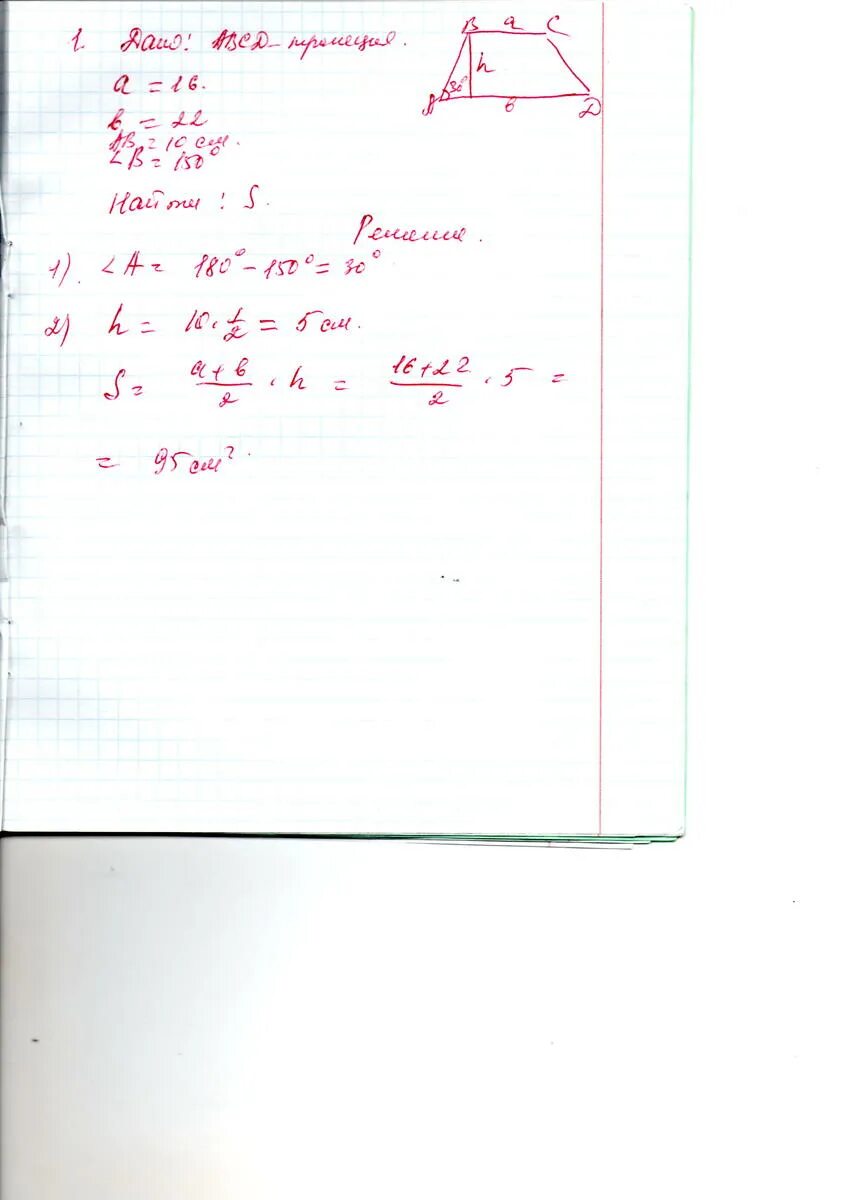 1. Дано: ABCD – трапеция.
a = 16.
b = 22
AB = 10 см.
∠B = 150°
Найти: S.
Решение.
1). ∠A = 180° – 150° = 30°
2) h = 10 · 1/2 = 5 см.
S = (a + b)/2 · h = (16 + 22)/2 · 5 =
= 95 см²
B a C
h
30°
A b D